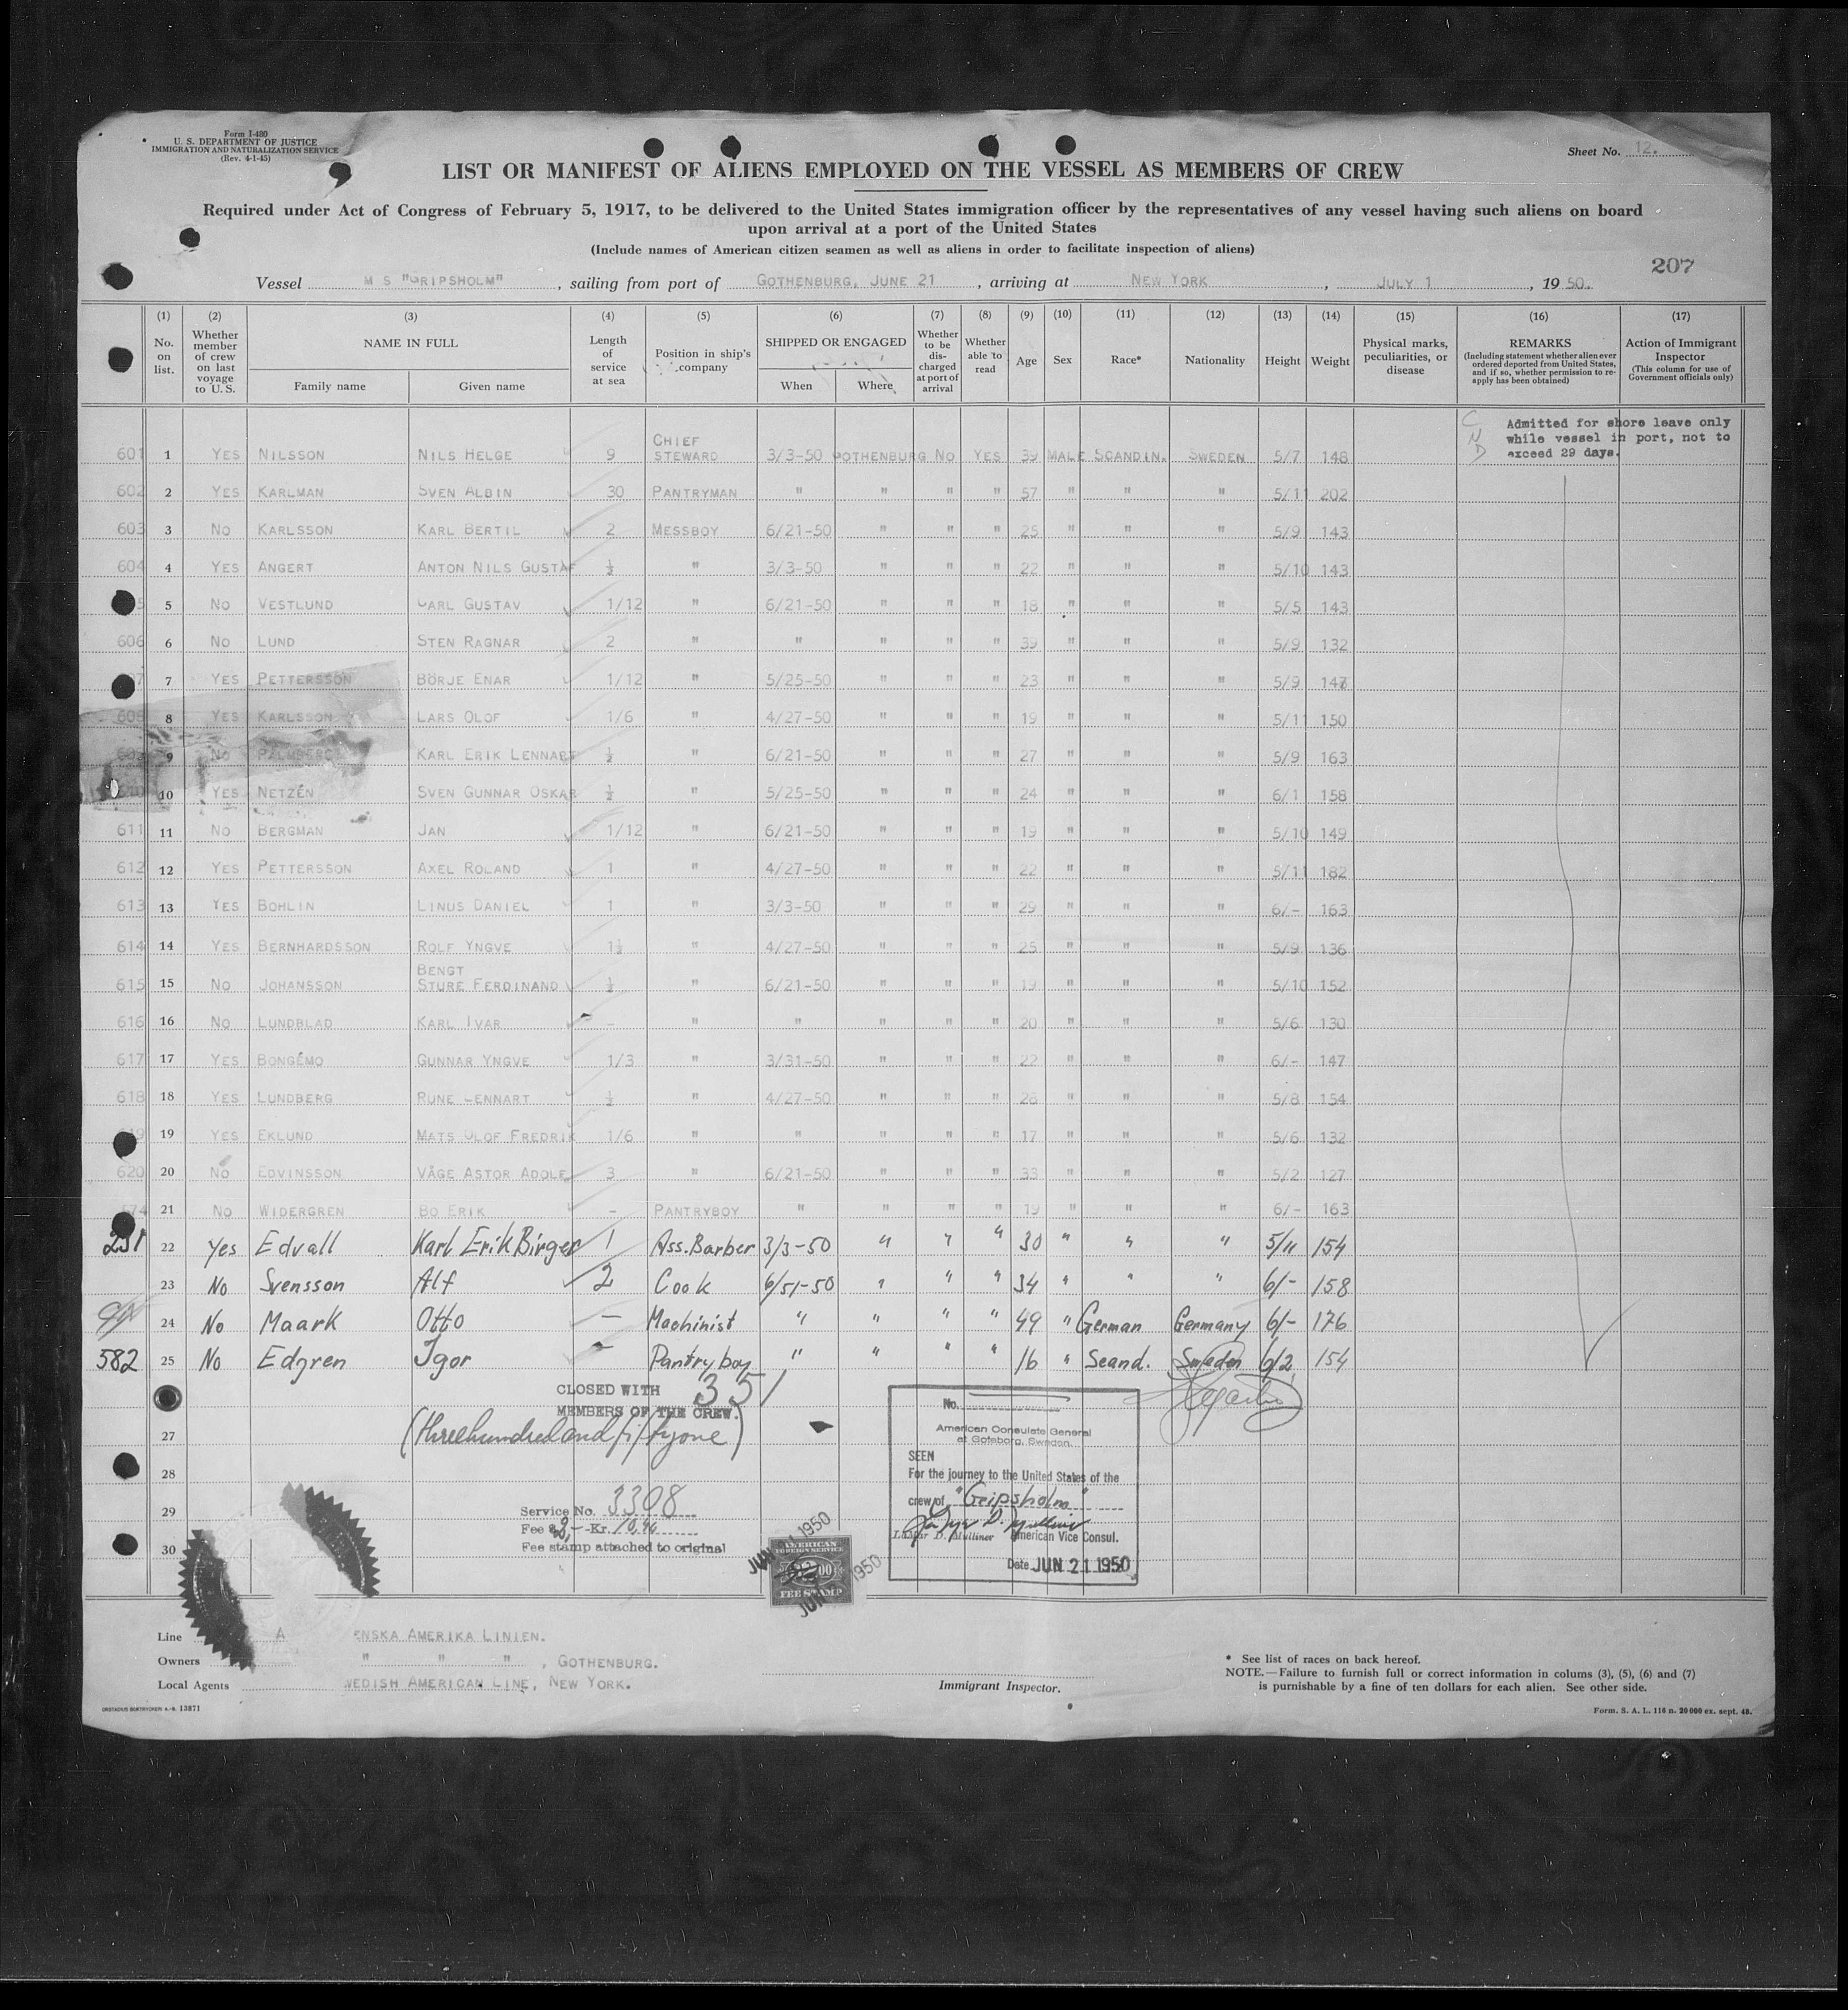 Form I-480
U. S. DEPARTMENT OF JUSTICE
IMMIGRATION AND NATURALIZATION SERVICE
(Rev. 4-1-45)
Sheet No. 12.
LIST OR MANIFEST OF ALIENS EMPLOYED ON THE VESSEL AS MEMBERS OF CREW
Required under Act of Congress of February 5, 1917, to be delivered to the United States immigration officer by the representatives of any vessel having such aliens on board
upon arrival at a port of the United States
(Include names of American citizen seamen as well as aliens in order to facilitate inspection of aliens)
207
Vessel M S "GRIPSHOLM", sailing from port of GOTHENBURG, JUNE 21, arriving at NEW YORK, JULY 1, 1950.
(1) (2) (3) (4) (5) (6) (7) (8) (9) (10) (11) (12) (13) (14) (15) (16) (17)
No. on list. Whether member of crew on last voyage to U. S. NAME IN FULL Family name Given name Length of service at sea Position in ship's company SHIPPED OR ENGAGED When Where Whether to be discharged at port of arrival Whether able to read Age Sex Race* Nationality Height Weight Physical marks, peculiarities, or disease REMARKS (Including statement whether alien ever ordered deported from United States, and if so, whether permission to reapply has been obtained) Action of Immigrant Inspector (This column for use of Government officials only)
C N D Admitted for shore leave only
while vessel in port, not to
exceed 29 days.
601 1 YES NILSSON NILS HELGE 9 CHIEF STEWARD 3/3-50 GOTHENBURG NO YES 39 MALE SCANDIN. SWEDEN 5/7 148
602 2 YES KARLMAN SVEN ALBIN 30 PANTRYMAN " " " " 57 " " " 5/11 202
603 3 NO KARLSSON KARL BERTIL 2 MESSBOY 6/21-50 " " " 25 " " " 5/9 143
604 4 YES ANGERT ANTON NILS GUSTAF ½ " 3/3-50 " " " 22 " " " 5/10 143
5 NO VESTLUND CARL GUSTAV 1/12 " 6/21-50 " " " 18 " " " 5/5 143
606 6 NO LUND STEN RAGNAR 2 " " " " " 39 " " " 5/9 132
7 YES PETTERSSON BÖRJE ENAR 1/12 " 5/25-50 " " " 23 " " " 5/9 147
608 8 YES KARLSSON LARS OLOF 1/6 " 4/27-50 " " " 19 " " " 5/11 150
9 NO PALMBERG KARL ERIK LENNART ½ " 6/21-50 " " " 27 " " " 5/9 163
10 YES NETZÉN SVEN GUNNAR OSKAR ½ " 5/25-50 " " " 24 " " " 6/1 158
611 11 NO BERGMAN JAN 1/12 " 6/21-50 " " " 19 " " " 5/10 149
612 12 YES PETTERSSON AXEL ROLAND 1 " 4/27-50 " " " 22 " " " 5/11 182
613 13 YES BOHLIN LINUS DANIEL 1 " 3/3-50 " " " 29 " " " 6/- 163
614 14 YES BERNHARDSSON ROLF YNGVE 1½ " 4/27-50 " " " 25 " " " 5/9 136
615 15 NO JOHANSSON BENGT STURE FERDINAND ½ " 6/21-50 " " " 19 " " " 5/10 152
616 16 NO LUNDBLAD KARL IVAR - " " " " " 20 " " " 5/6 130
617 17 YES BONGÉMO GUNNAR YNGVE 1/3 " 3/31-50 " " " 22 " " " 6/- 147
618 18 YES LUNDBERG RUNE LENNART ½ " 4/27-50 " " " 28 " " " 5/8 154
19 YES EKLUND MATS OLOF FREDRIK 1/6 " " " " " 17 " " " 5/6 132
620 20 NO EDVINSSON VÅGE ASTOR ADOLF 3 " 6/21-50 " " " 33 " " " 5/2 127
21 NO WIDERGREN BO ERIK - PANTRYBOY " " " " 19 " " " 6/- 163
231 22 Yes Edvall Karl Erik Birger 1 Ass. Barber 3/3-50 " " " 30 " " " 5/11 154
23 No Svensson Alf 2 Cook 6/51-50 " " " 34 " " " 6/- 158
24 No Maark Otto - Machinist " " " " 49 " German Germany 6/- 176
582 25 No Edgren Igor - Pantryboy " " " " 16 " Scand. Sweden 6/2 154
CLOSED WITH 351
MEMBERS OF THE CREW.
(threehundredandfiftyone)
27
28
29
30
Service No. 3308
Fee $ 2,- Kr. 10.40
Fee stamp attached to original
JUN 1950
AMERICAN
FOREIGN SERVICE
FEE STAMP
No.
American Consulate General
at Goteborg, Sweden.
SEEN
For the journey to the United States of the
crew of "Gripsholm"
D. Mulliner American Vice Consul.
Date JUN 21 1950
Line A ENSKA AMERIKA LINIEN.
Owners " " " , GOTHENBURG.
Local Agents WEDISH AMERICAN LINE, NEW YORK.
Immigrant Inspector.
* See list of races on back hereof.
NOTE.—Failure to furnish full or correct information in colums (3), (5), (6) and (7)
is purnishable by a fine of ten dollars for each alien. See other side.
13871
Form. S. A. L. 116 n. 20 000 ex. sept. 48.